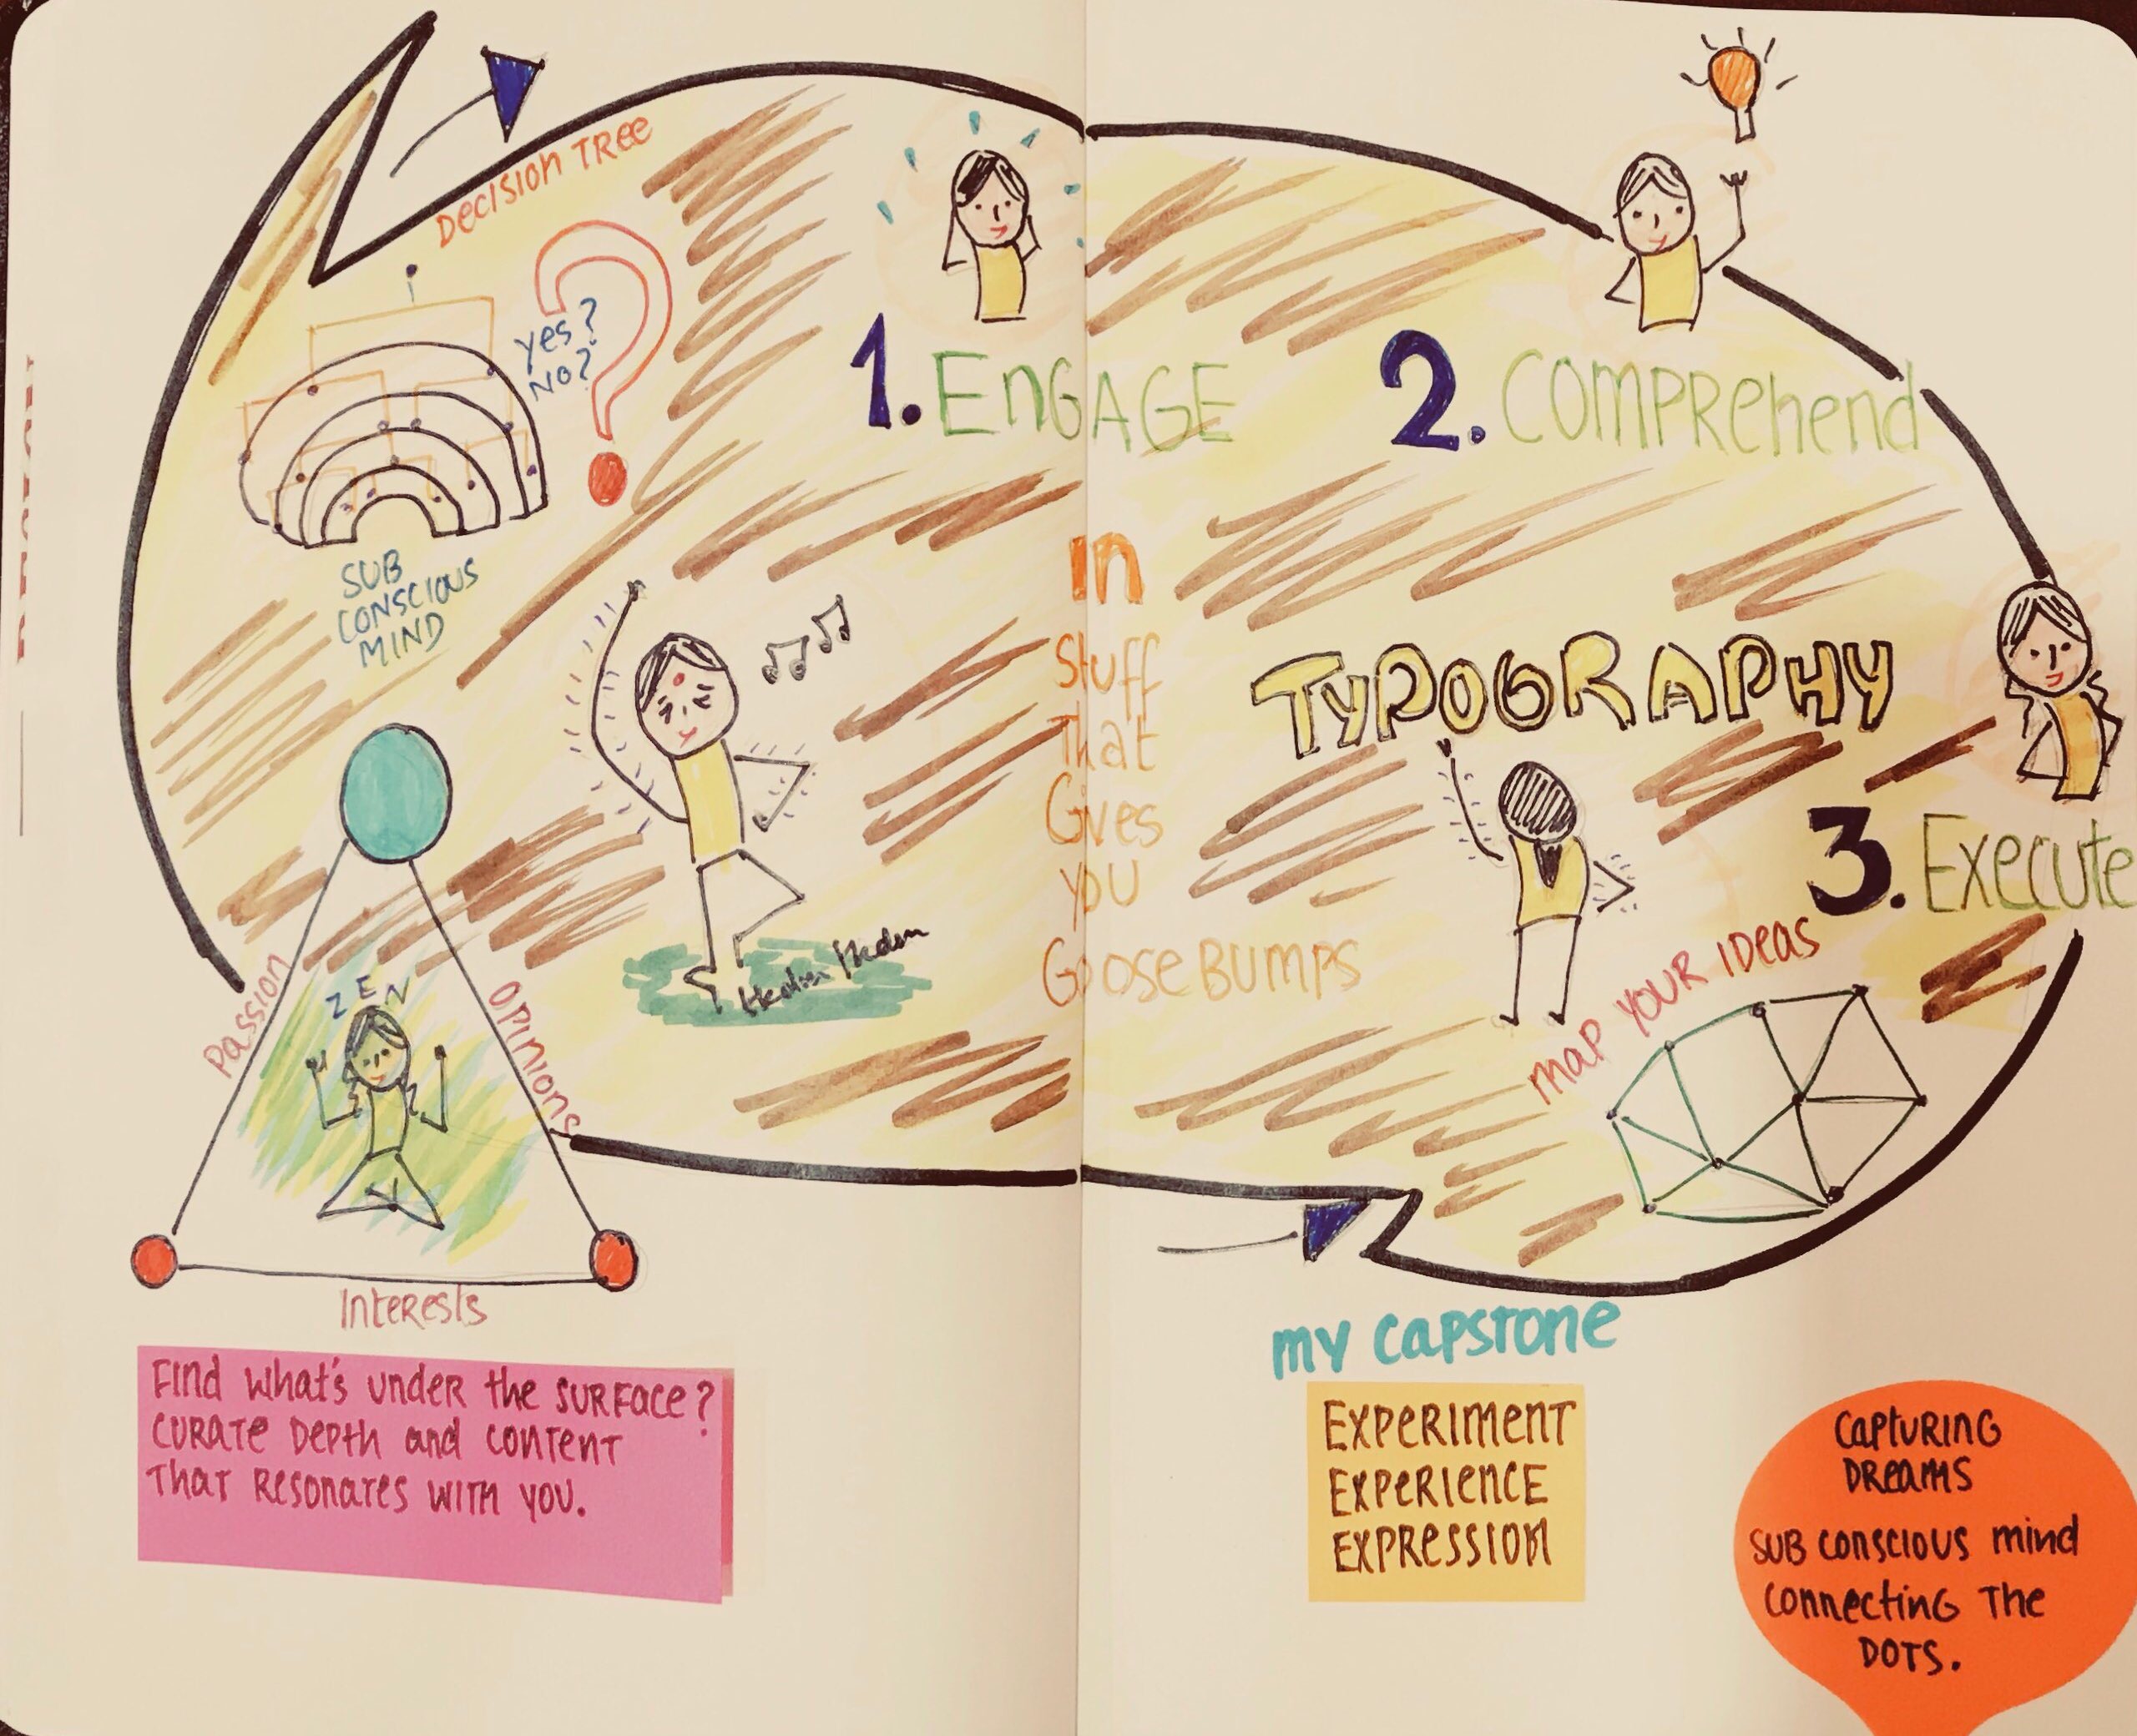 Decision Tree
yes?
NO?
SUB
CONSCIOUS
MIND
1. EnGAGE
2. COMPRehend
In
Stuff
That
Gives
you
GooseBumps
TyPOGRAPHY
3. Execute
Map YOUR IDeas
Passion
ZEN
Opinions
Interests
Find what's under the surface?
Curate Depth and content
That Resonates with you.
my capstone
Experiment
Experience
Expression
Capturing
Dreams
Sub conscious mind
Connecting The
Dots.